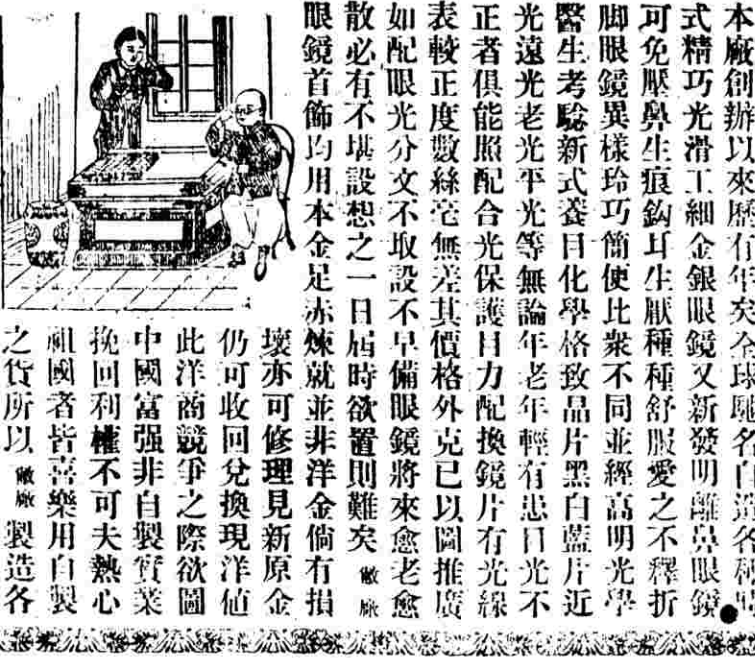 本廠創辦以來歷有年矣全球馳名自造各種
式精巧光滑工細金銀眼鏡又新發明離鼻眼鏡
可免壓鼻生痕鈎耳生厭種種舒服愛之不釋折
脚眼鏡異樣玲巧簡便比衆不同並經高明光學
醫生考驗新式養目化學格致晶片黑白藍片近
光遠光老光平光等無論年老年輕有患目光不
正者俱能照配合光保護目力配換鏡片有光線
表較正度數絲毫無差其價格外克已以圖推廣
如配眼光分文不取設不早備眼鏡將來愈老愈
散必有不堪設想之一日屆時欲置則難矣敝廠
眼鏡首飾均用本金足赤煉就並非洋金倘有損
壞亦可修理見新原金
仍可收回兌換現洋値
此洋商競爭之際欲圖
中國富强非自製實業
挽回利權不可夫熱心
祖國者皆喜樂用自製
之貨所以敝廠製造各